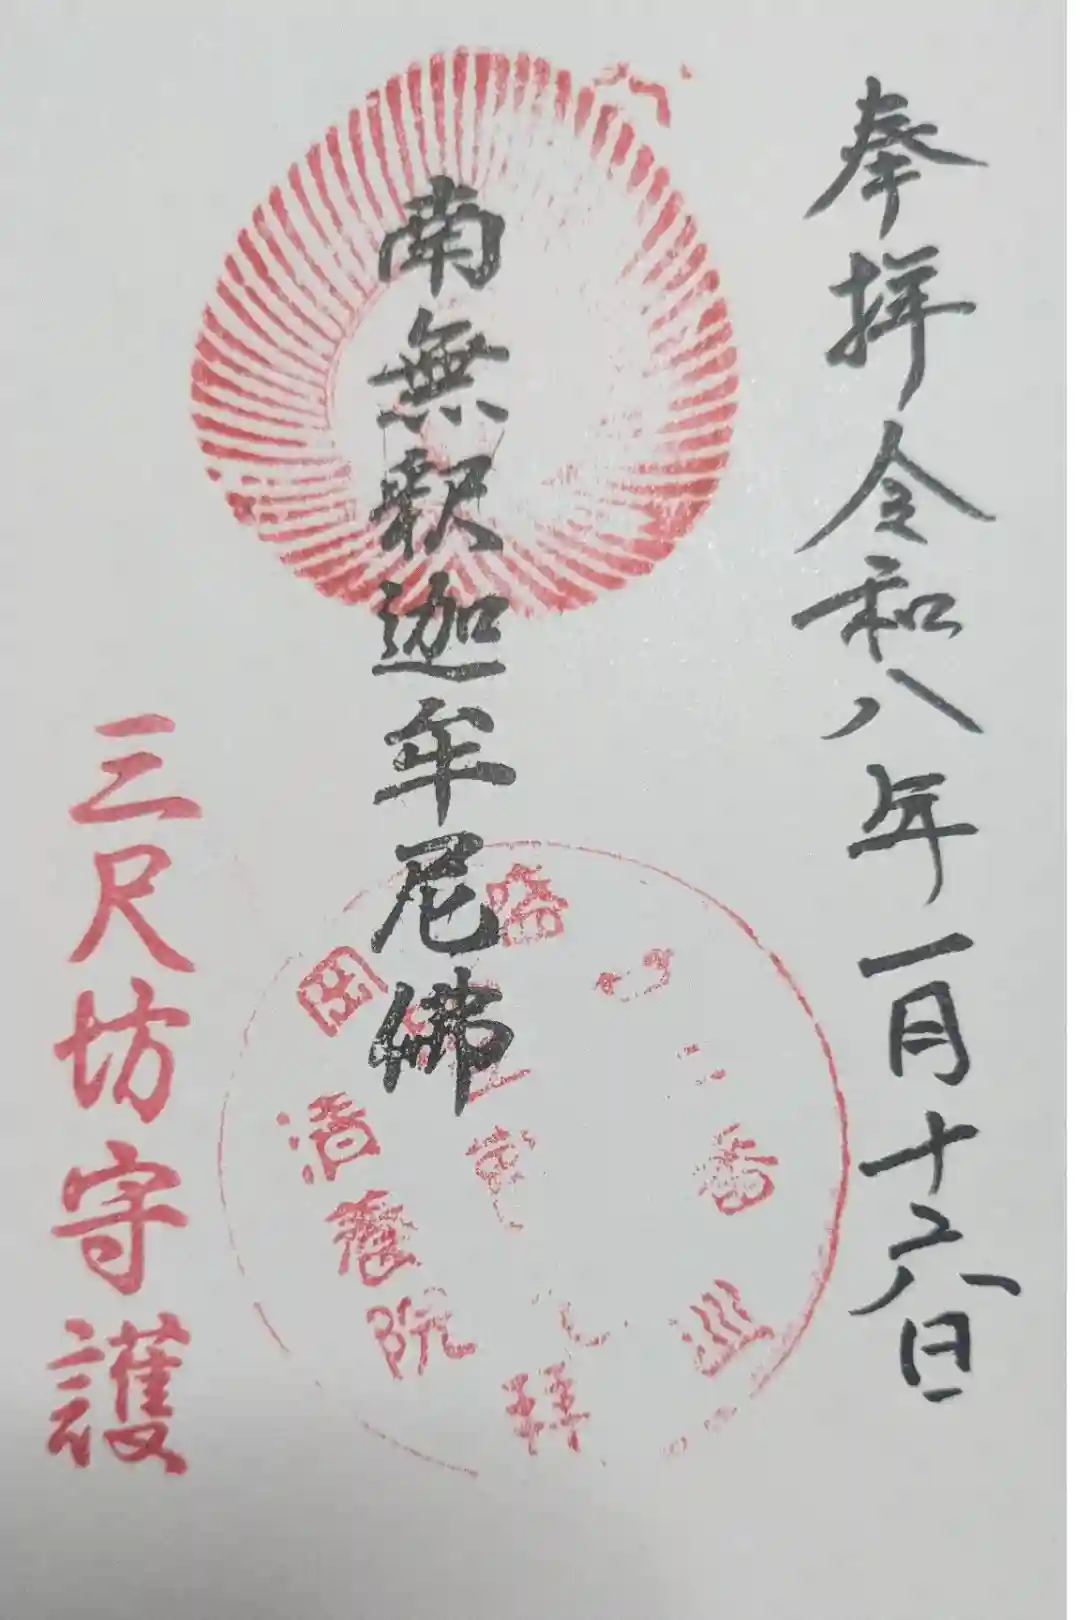 奉拝令和八年一月十六日
南無釈迦牟尼佛
三尺坊守護
番
拝
清養院